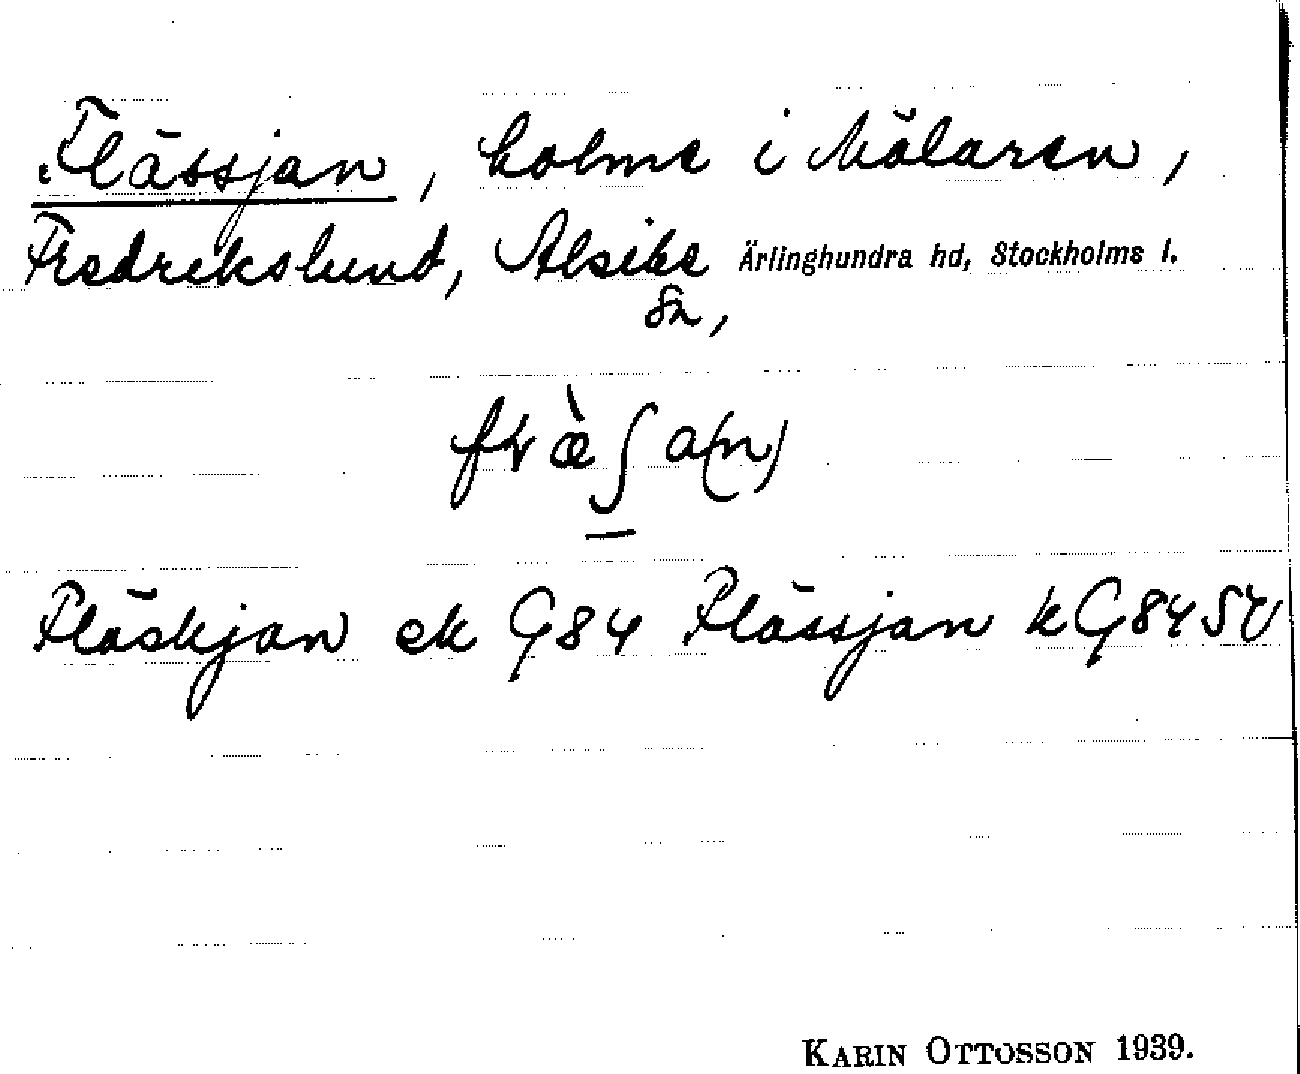 Flässjan, holme i Mälaren,
Fredrikslund, Alsike Ärlinghundra hd, Stockholms l.
sn,
Fläskjan ek G84 Flässjan kG84SV
KARIN OTTOSSON 1939.